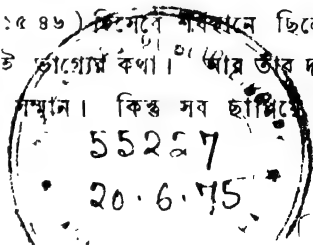 ১৫৪৬) হিসেবে ছিলে
ই ভাগ্যের কথা। আর তাঁর দ
সম্মান। কিন্তু সব ছাপিয়ে
55227
20.6.75